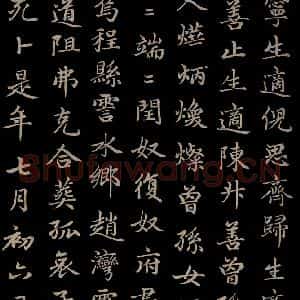 寧生適倪思齊歸生
善止生適陳廾善曾
人燧炳煥燦曾孫女
二端二閏奴復奴府
為程縣雲水鄉趙灣雲
道阻弗克合葬孤哀子
卜是年七月初六
Shufawang.CN